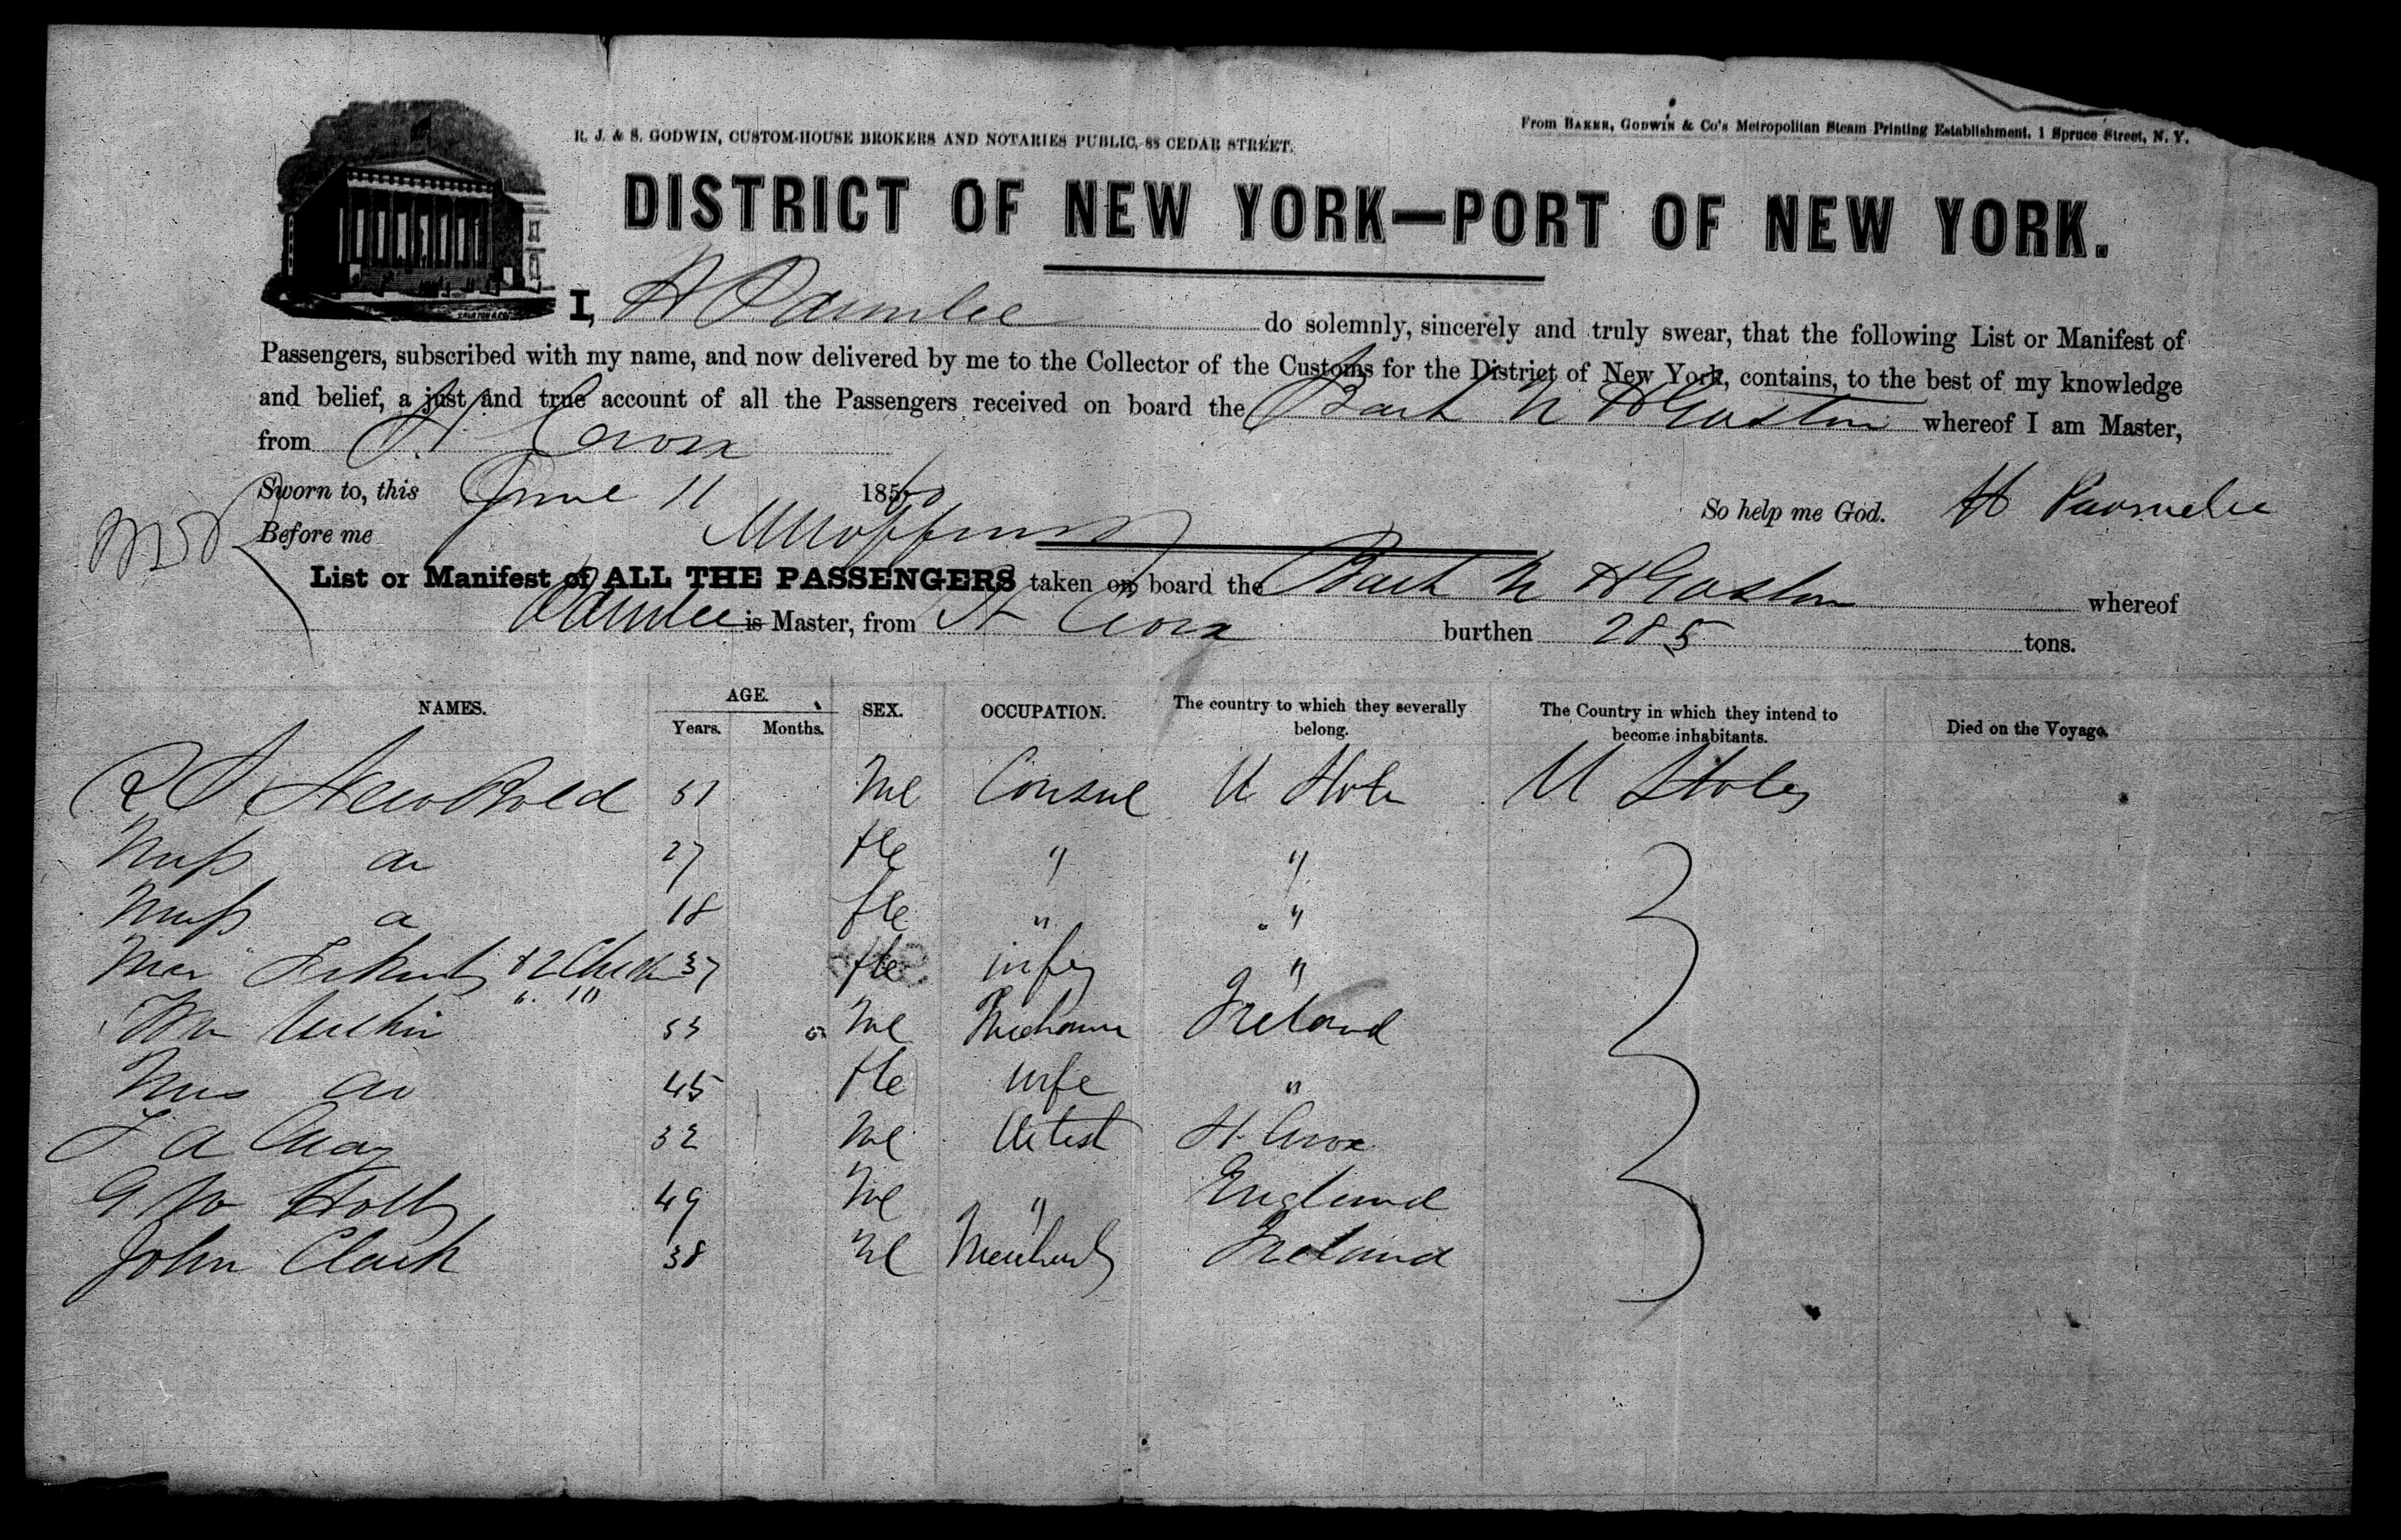 R. J. & S. GODWIN, CUSTOM-HOUSE BROKERS AND NOTARIES PUBLIC, 88 CEDAR STREET.
From BAKER, GODWIN & Co's Metropolitan Steam Printing Establishment, 1 Spruce Street, N. Y.
DISTRICT OF NEW YORK—PORT OF NEW YORK.
I, H Parmlee do solemnly, sincerely and truly swear, that the following List or Manifest of
Passengers, subscribed with my name, and now delivered by me to the Collector of the Customs for the District of New York, contains, to the best of my knowledge
and belief, a just and true account of all the Passengers received on board the Bark N H Gaston whereof I am Master,
from St Croix
Sworn to, this June 11 1860
So help me God. H Parmelee
Before me
List or Manifest of ALL THE PASSENGERS taken on board the Bark N H Gaston whereof
Parmlee is Master, from St Croix burthen 285 tons.
NAMES. AGE. Years. Months. SEX. OCCUPATION. The country to which they severally belong. The Country in which they intend to become inhabitants. Died on the Voyage.
R S Newbold 51 Me Consul U States U States
Miss do 27 Fe " "
Miss do 18 Fe " "
Mrs & 2 Child 37 Fe wife "
" "
Wm 53 Me Mechanic Ireland
Mrs do 45 Fe wife "
32 Me Artist St Croix
G W Holly 49 Me " England
John Clark 38 Me Merchant Ireland